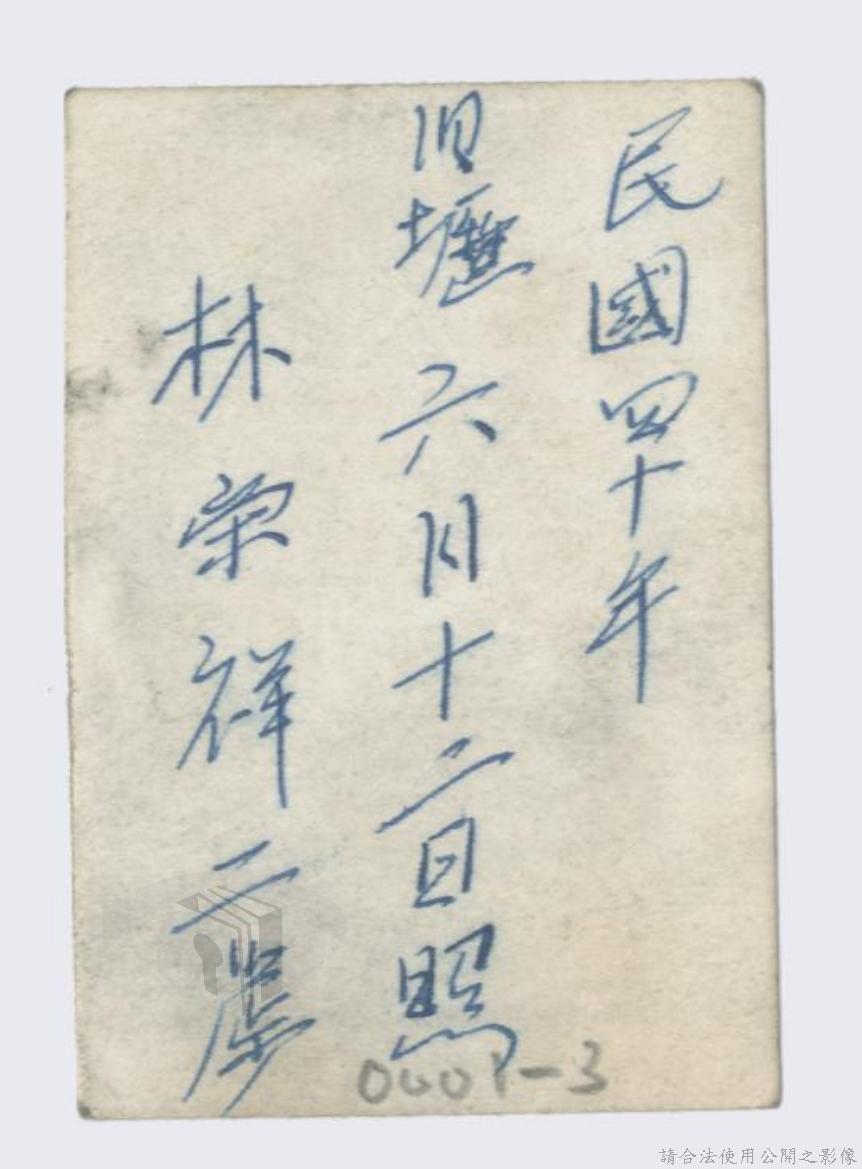 民國四十年
旧壢六月十二日照
林栄祥二歲
0001-3
請合法使用公開之影像